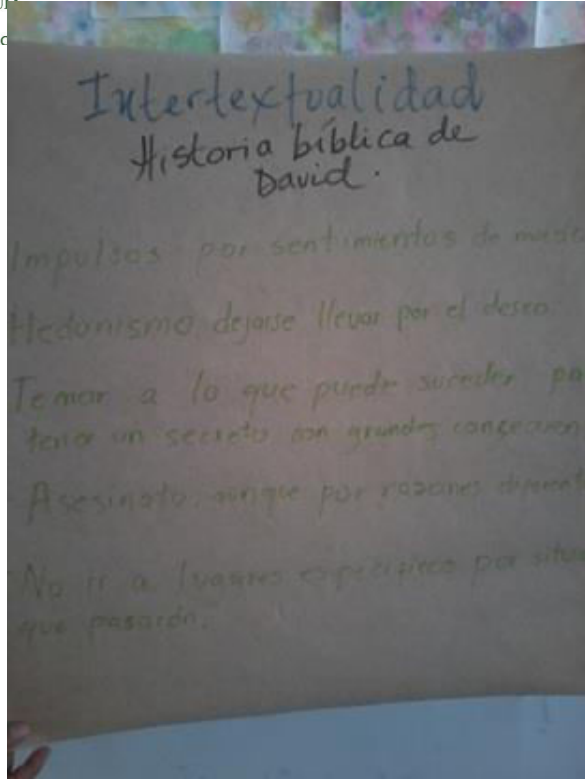 Intertextualidad
Historia bíblica de
David.
Impulsos por sentimientos de
Hedonismo, dejarse llevar por el deseo.
Temor a lo que puede suceder
tener un secreto con grandes
Asesinato, aunque por razones
No ir a lugares específicos por
que pasarón.